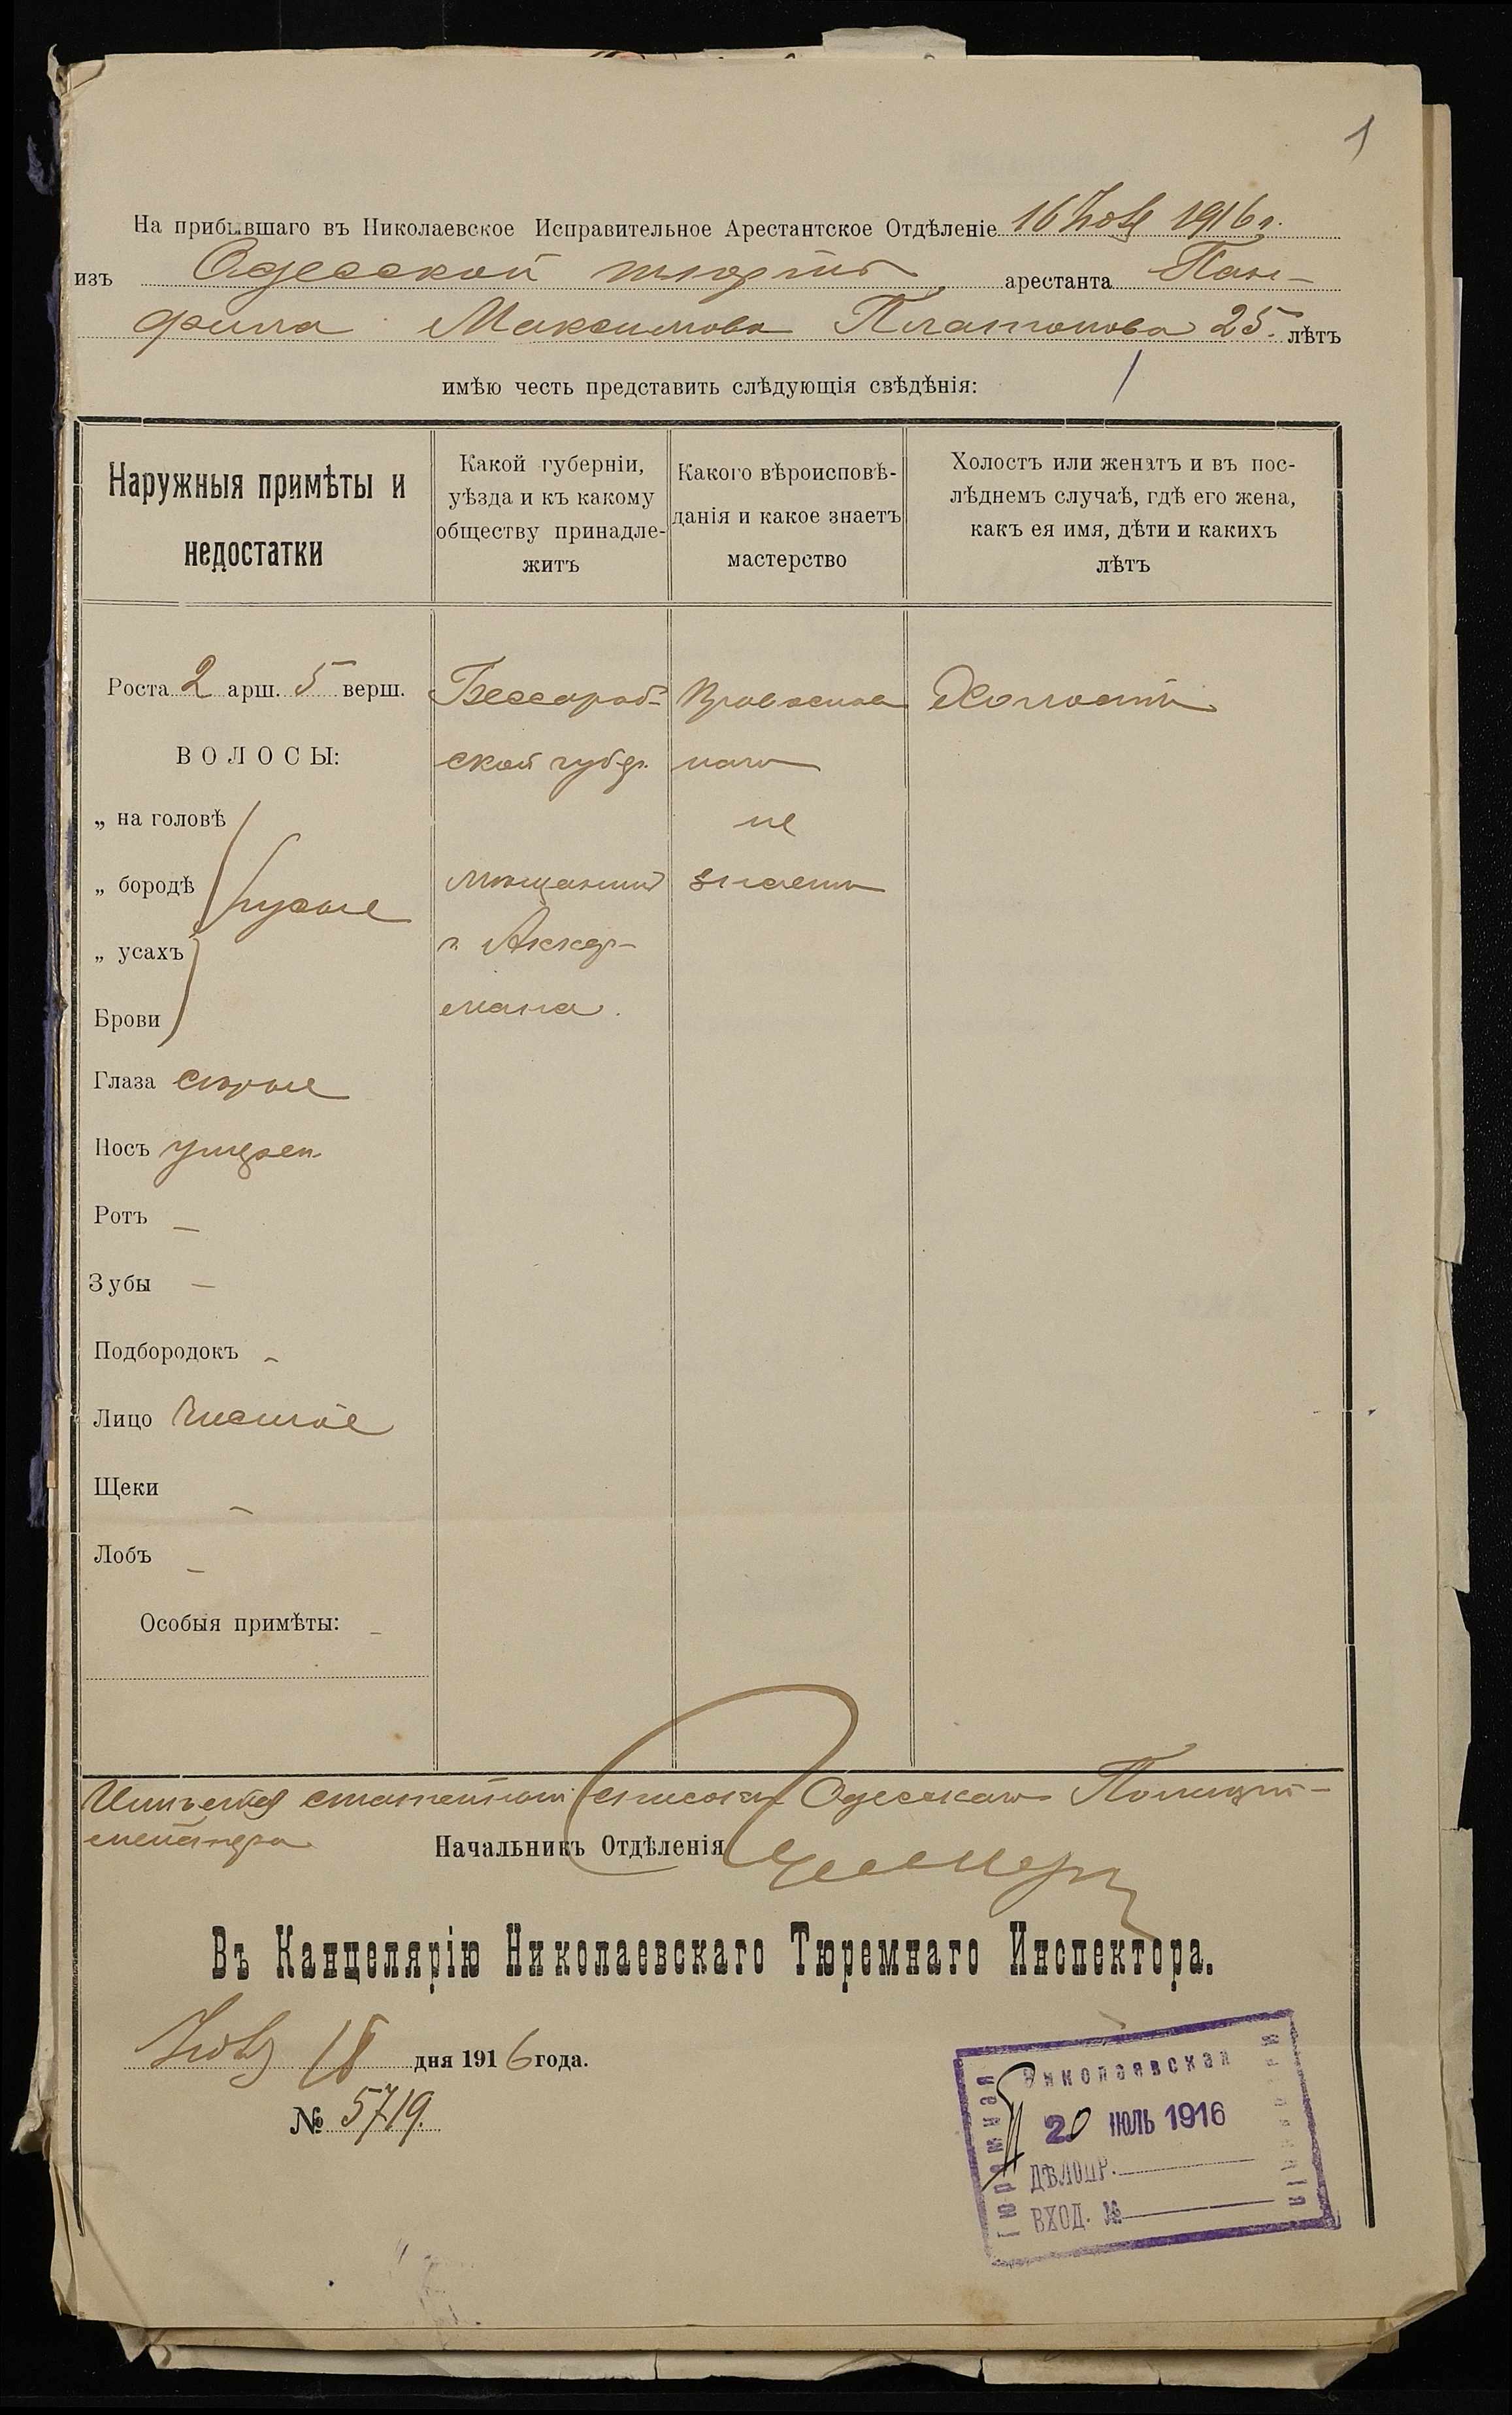 1
На прибывшаго въ Николаевское Исправительное Арестантское Отдѣленіе 16 Іюля 1916 г.
изъ Одесской тюрьмы арестанта Пан-
фила Максимова Платонова 25 лѣтъ
имѣю честь представить слѣдующія свѣдѣнія:
Наружныя примѣты и
недостатки
Какой губерніи,
уѣзда и къ какому
обществу принадле-
житъ
Какого вѣроисповѣ-
данія и какое знаетъ
мастерство
Холостъ или женатъ и въ пос-
лѣднемъ случаѣ, гдѣ его жена,
какъ ея имя, дѣти и какихъ
лѣтъ
Роста 2 арш. 5 верш.
ВОЛОСЫ:
„ на головѣ
„ бородѣ
русые
„ усахъ
Брови
Глаза сѣрые
Носъ умѣрен.
Ротъ –
Зубы –
Подбородокъ –
Лицо чистое
Щеки –
Лобъ –
Особыя примѣты: –
Бессараб-
ской губер.
мѣщанинъ
г. Аккер-
мана.
Православ
наго
не
знаетъ
Холостъ
Имѣется статейный списокъ Одесскаго Полицій-
мейстера
Начальникъ Отдѣленія
Въ Канцелярію Николаевскаго Тюремнаго Инспектора.
Іюля 18 дня 1916 года.
№ 5719.
Николаевская
Тюремная
Инспекція
20 ІЮЛЬ 1916
ДѢЛОПР.
ВХОД. №